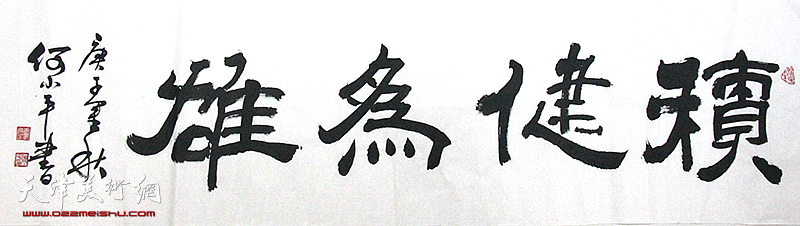 積健為雄
庚子墨秋
何小平書
天津美術網
www.022meishu.com